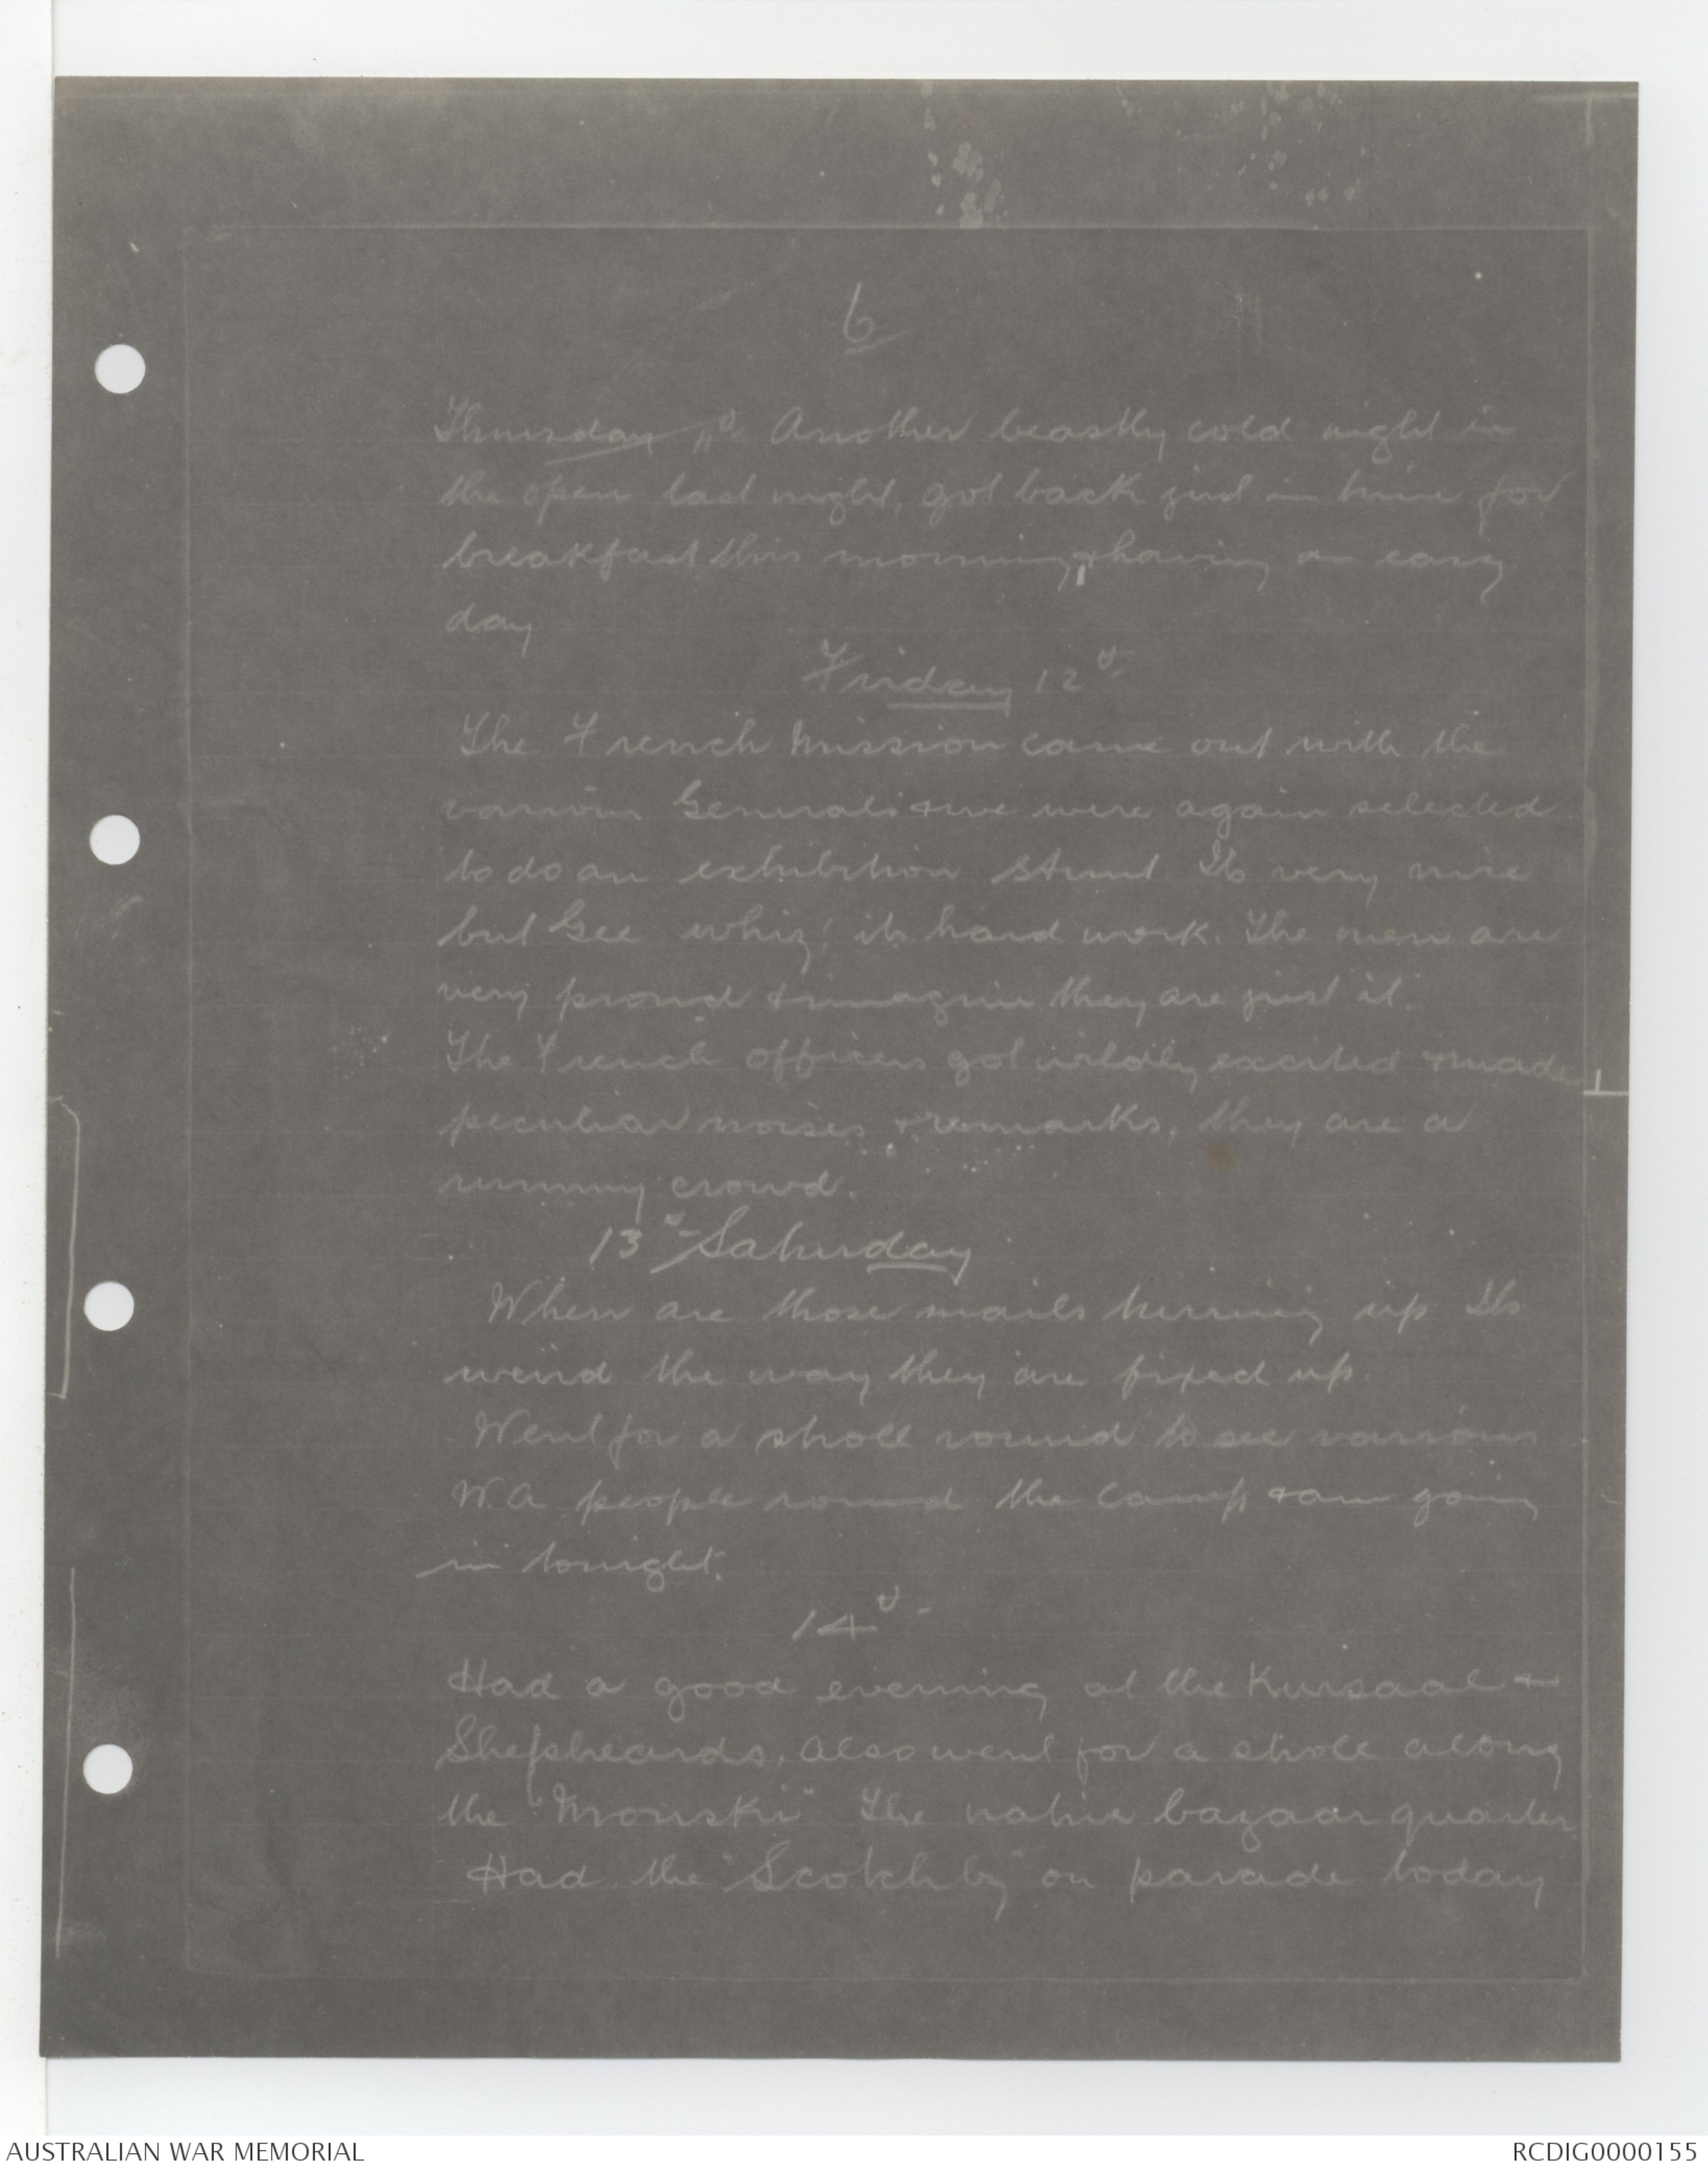 6
Thursday 11th Another beastly cold night in
the open last night, got back just in time for
breakfast this morning, & having an easy
day
Friday 12th
The French Mission came out with the
various Generals & we were again selected
to do an exhibition stunt. Its very nice
but Gee whiz! its hard work. The men are
very proud & imagine they are just it.
The French officers got wildly excited & made
peculiar noises & remarks, they are a
rummy crowd.
13th Saturday
When are those mails turning up Its
weird the way they are fixed up.
Went for a stroll round to see various
W.A people round the camp & am going
in tonight.
14th -
Had a good evening at the Kursaal &
Shepheards, also went for a stroll along
the "Mouski" The native bazaar quarter
Had the "Scotch by" on parade today
AUSTRALIAN WAR MEMORIAL
RCDIG0000155